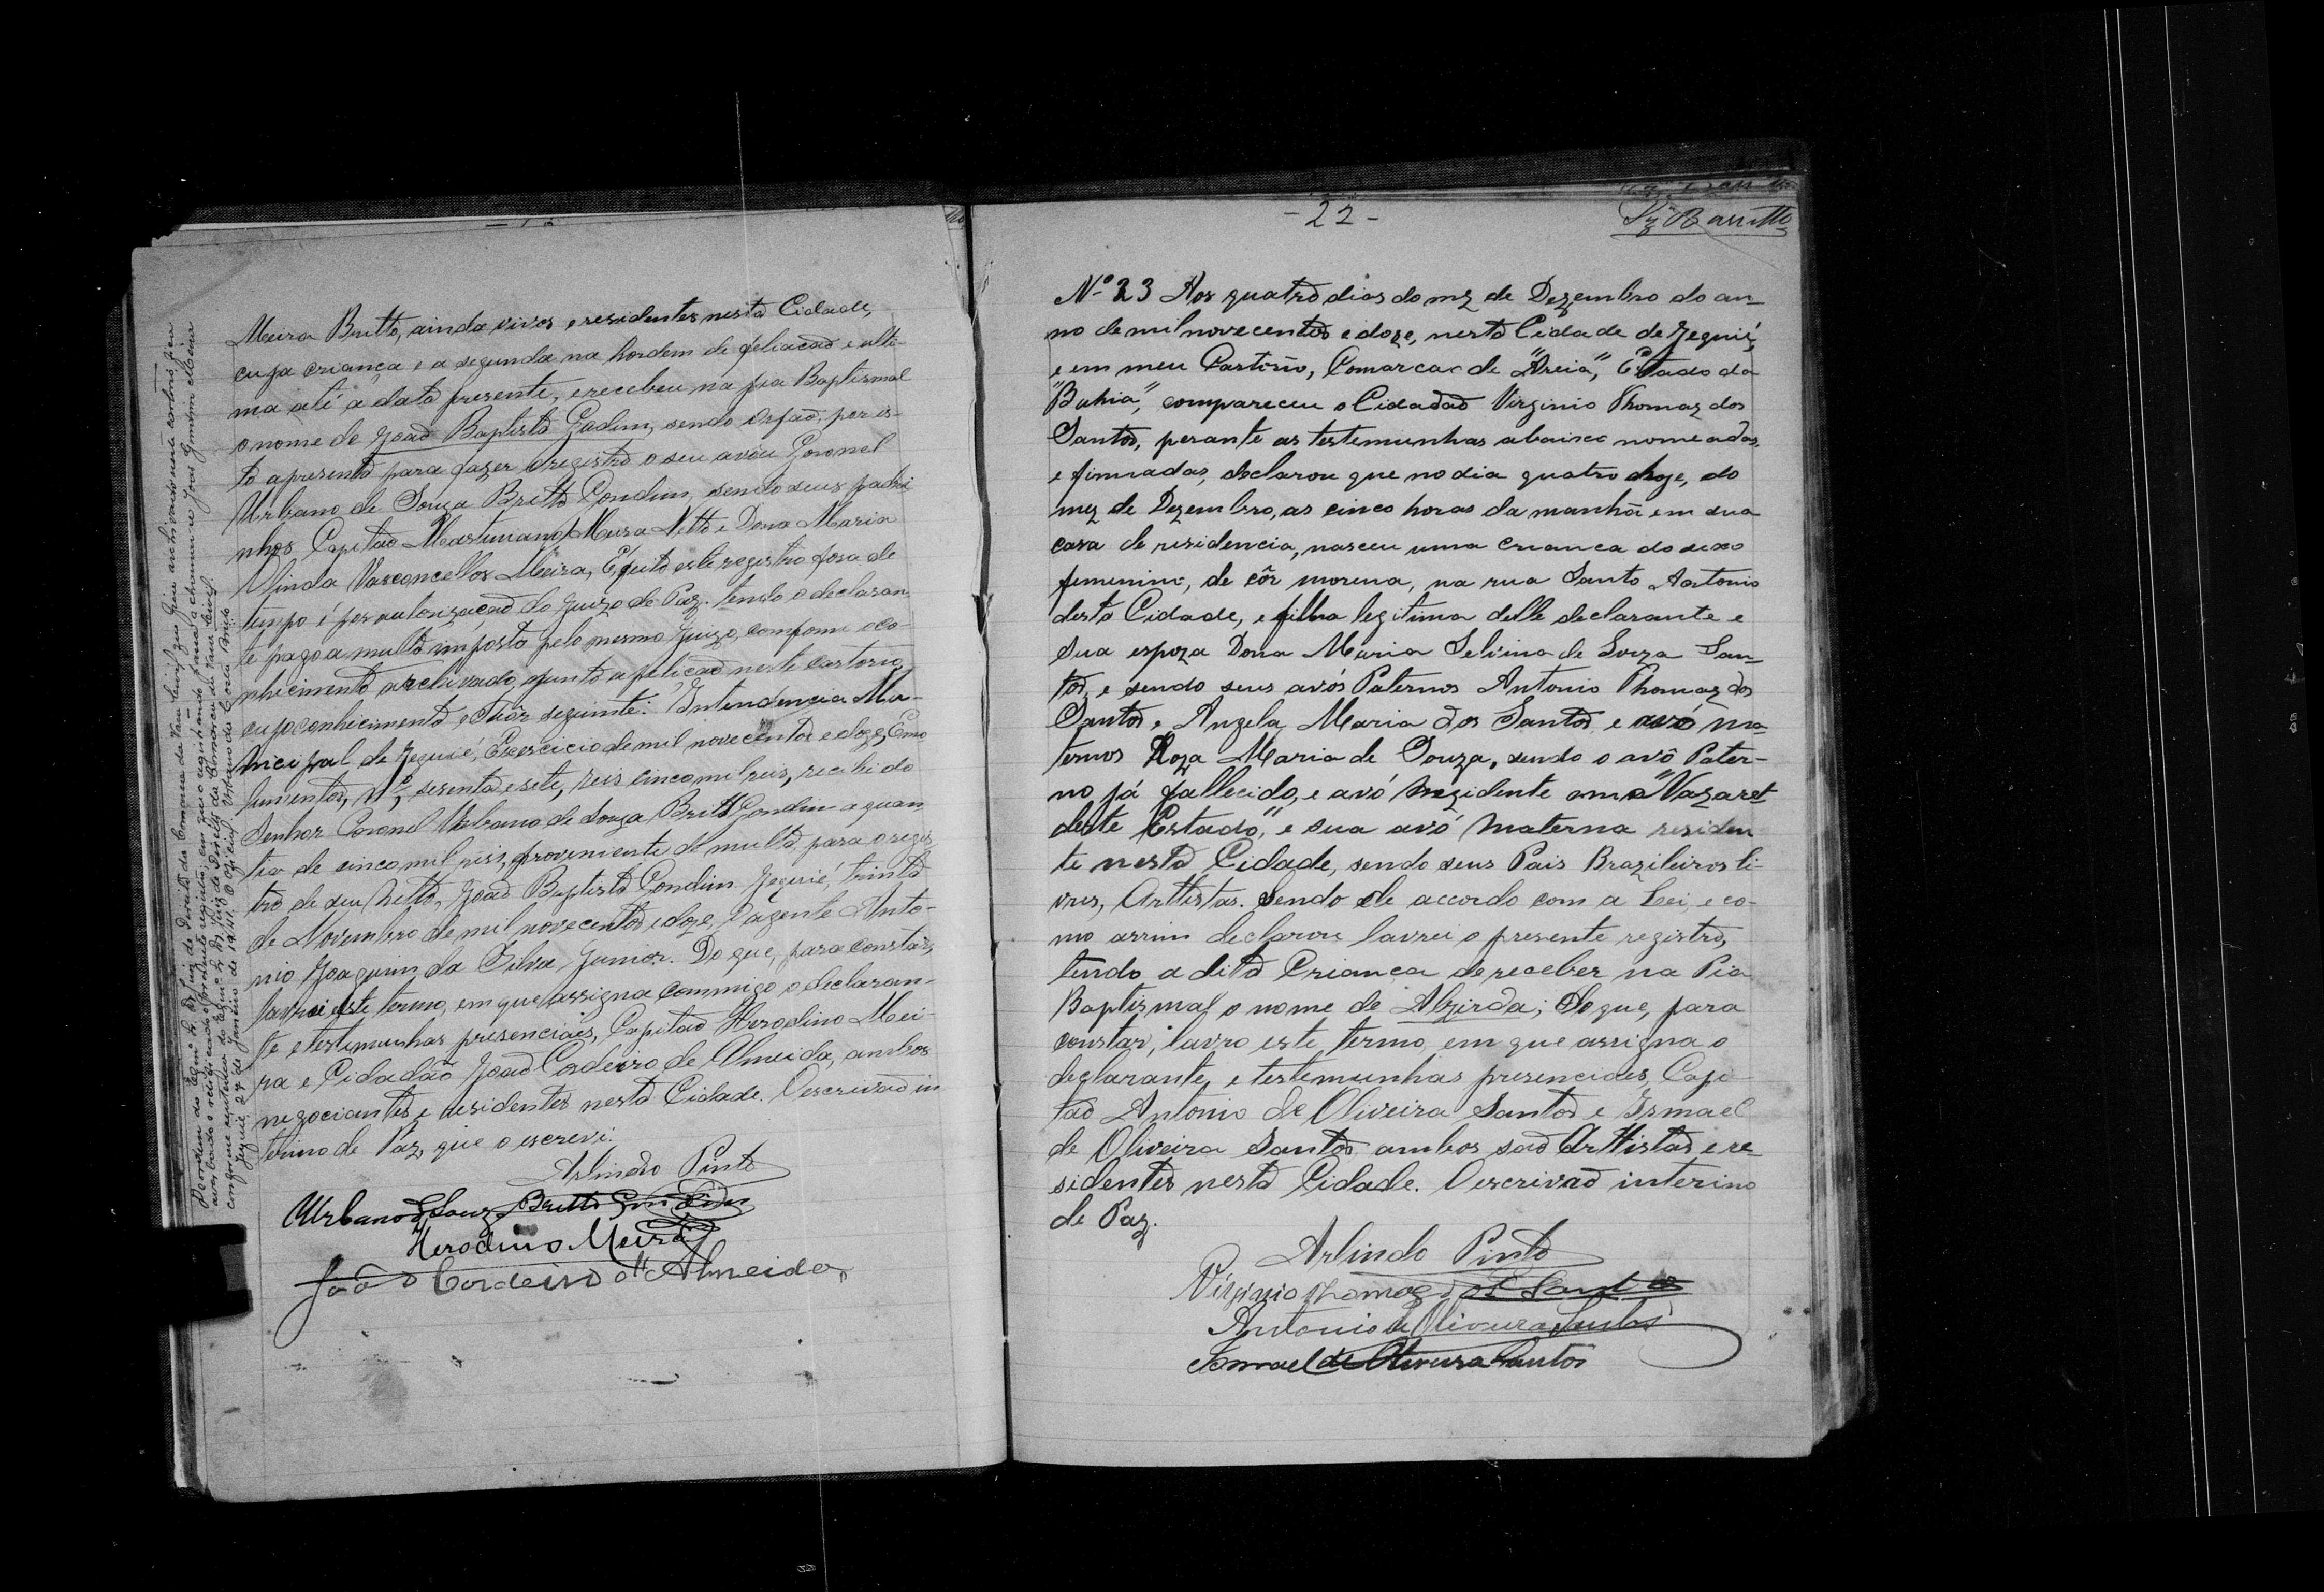 Meira Britto, ainda vivos e residentes nesta Cidade,
cuja criança e a segunda na hordem de feliacaõ e ulti-
ma até a data presente, e recebeu na pia Baptismal
o nome de Joaõ Baptista Gadim, sendo orfaõ, por is-
to apresento para fazer o registro o seu avôu Coronel
Urbano de Souza Britto Gondim, sendo seus padri
nhos Capitaõ Marturiano Meira Netto e Dona Maria
Olinda Vasconcellos Meira, E' feito este registro fora de
tempo é por autorizaçaõ do Juizo de Paz. tendo o declaran
te pago a multa imposta pelo mesmo Juizo, comforme o co-
nhicimento archivado, junto a petiçaõ neste cartorio,
cujo conhecimento e o thiôr seguinte: "Intendencia Mu-
nicipal de Jequié, Exercicio de mil novecentos e doze, Emo
lumentos, Nº, sesenta e sete, Reis cinco mil reis, recibi do
Senhor Coronel Urbano de Souza Britto Gondim a quan
tia de cinco mil reis, proveniente de multa, para o regis
tro de seu Netto, Joaõ Baptista Gondim. Jequié, trinta
de Novembro de mil novecentos e doze, O agente Anto-
nio Joaquim da Silva Junior. Do que, para constar,
lavrei este termo, em que assigna commigo o declaran-
te e testemunhas presenciais, Capitaõ Herodino Mei-
ra e Cidadão Joaõ Cordeiro de Almeida, ambos
negociantes e residentes nesta Cidade. O escrivaõ in
terino de Paz, que o escrevi.
Arlindo Pinto
Urbano de Souza Britto Gondim
Herodino Meira
João Cordeiro de Almeida
Jequié, 27 de Janeiro de 1941. O Oficial Urbano da Costa Brito
- 22 -
Barretto
Nº 23 Aos quatro dias do mez de Dezembro do an-
no de mil novecentos e doze, nesta Cidade de Jequié,
e em meu Cartorio, Comarca de "Areia", Estado da
"Bahia", compareceu o Cidadaõ Virginio Thomaz dos
Santos, perante as testemunhas abaixo nomeadas,
e firmadas, declarou que no dia quatro hoje, do
mez de Dezembro, as cinco horas da manhã em sua
casa de residencia, nasceu uma crianca do sexo
feminino, de côr morena, na rua Santo Antonio
desta Cidade, e filha legitima delle declarante e
sua espoza Dona Maria Selvina de Souza San-
tos, e sendo seus avós Paternos Antonio Thomaz dos
Santos e Angela Maria dos Santos e avó ma
ternos Roza Maria de Souza, sendo o avô Pater-
no já fallecido, e avó rezidente em "Nazaret
deste Estado", e sua avó Materna residen
te nesta Cidade, sendo seus Pais Brazileiros li-
vres, Arttistas. Sendo de accordo com a Lei, e co-
mo assim declarou lavrei o presente registro,
tendo a dita Crianca de receber na Pia
Baptismal o nome de Alzirda; Do que, para
constar, lavro este termo, em que assigna o
declarante, e testemunhas presenciaes, Capi-
taõ Antonio de Oliveira Santos e Ismael
de Oliveira Santos ambos saõ Arttistas e re-
sidentes nesta Cidade. O escrivaõ interino
de Paz.
Arlindo Pinto
Virginio Thomaz dos Santos
Antonio de Oliveira Santos
Ismael de Oliveira Santos